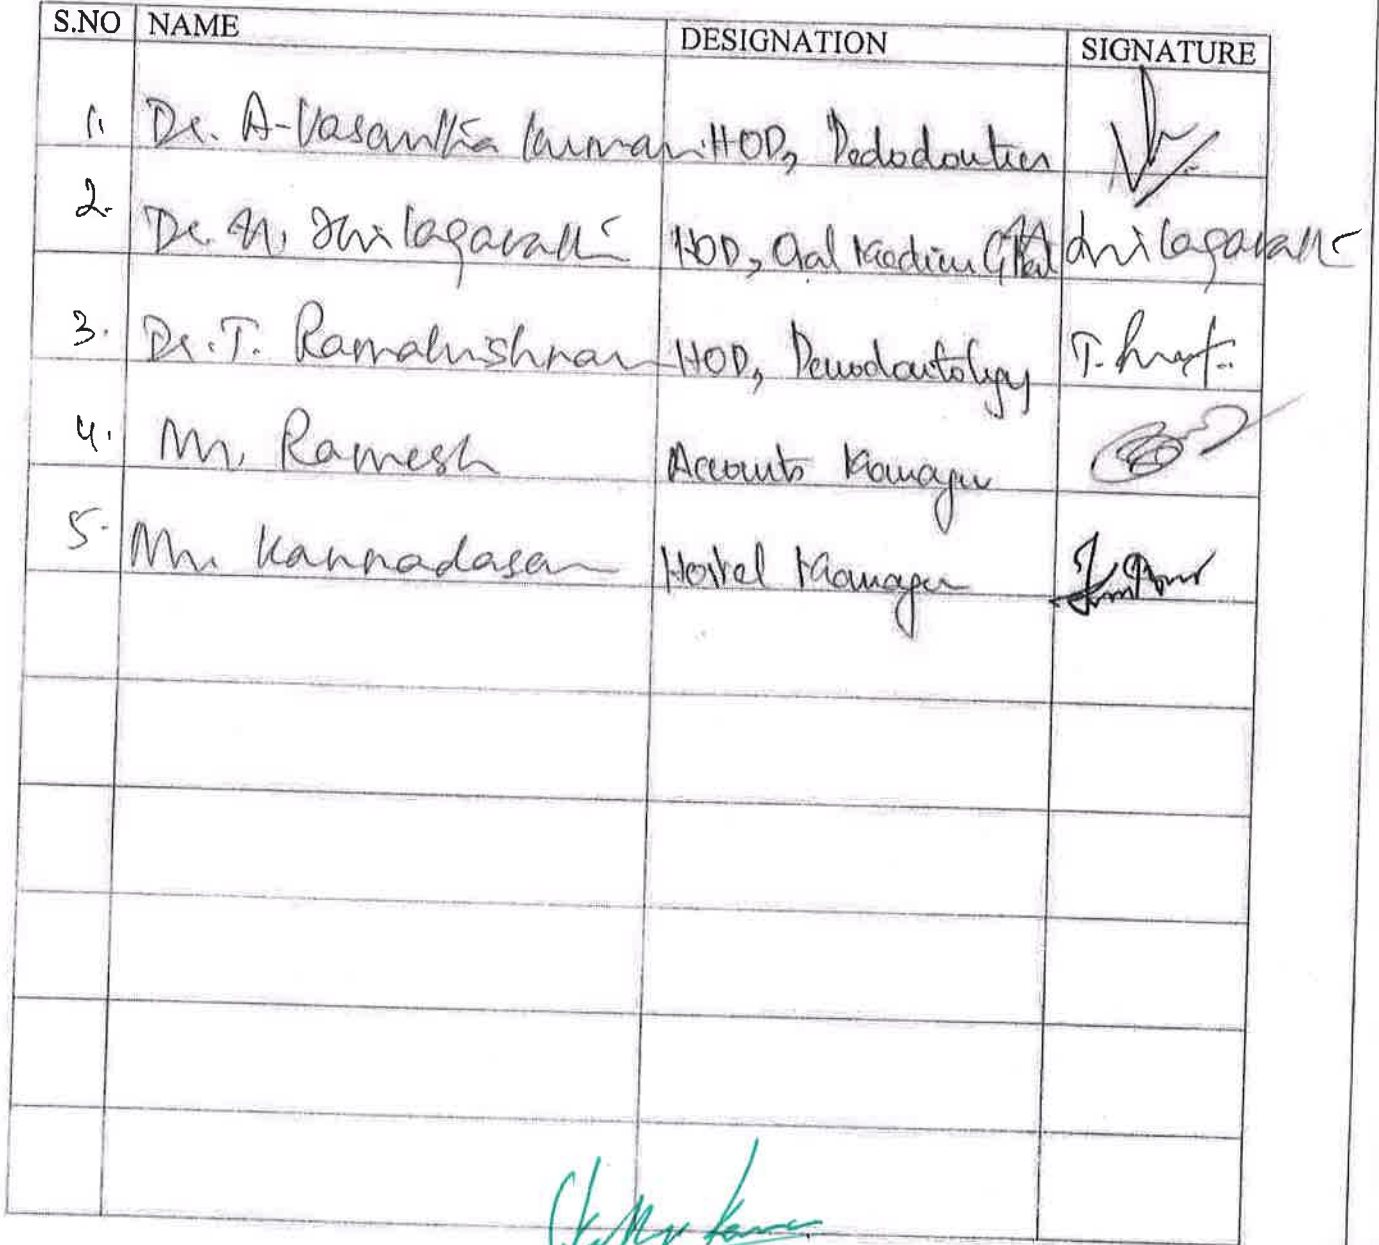 S.NO NAME DESIGNATION SIGNATURE
1. Dr. A. Vasantha Kumari HOD, Pedodontics
2. Dr. N. Thilagavathi HOD, Oral Medicine Thilagavathi
3. Dr. T. Ramakrishnan HOD, Periodontology T.
4. Mr. Ramesh Accounts Manager
5. Mr. Kannadasan Hostel Manager